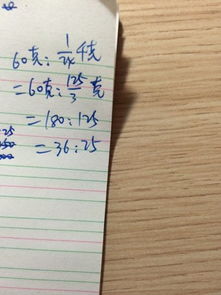 60克:1/24千克
=60克:125/3克
=180:125
=36:25
25